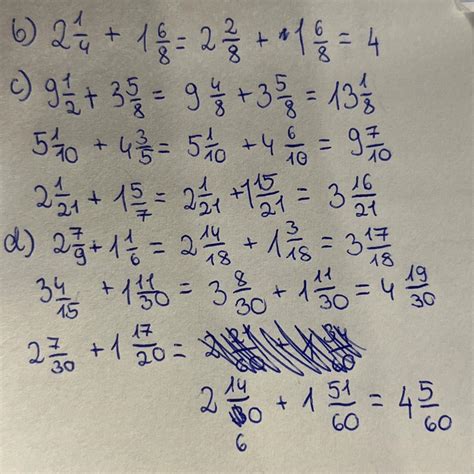 b) 2 1/4 + 1 6/8 = 2 2/8 + 1 6/8 = 4
c) 9 1/2 + 3 5/8 = 9 4/8 + 3 5/8 = 13 1/8
5 1/10 + 4 3/5 = 5 1/10 + 4 6/10 = 9 7/10
2 1/21 + 1 5/7 = 2 1/21 + 1 15/21 = 3 16/21
d) 2 7/9 + 1 1/6 = 2 14/18 + 1 3/18 = 3 17/18
3 4/15 + 1 11/30 = 3 8/30 + 1 11/30 = 4 19/30
2 7/30 + 1 17/20 =
2 14/60 + 1 51/60 = 4 5/60